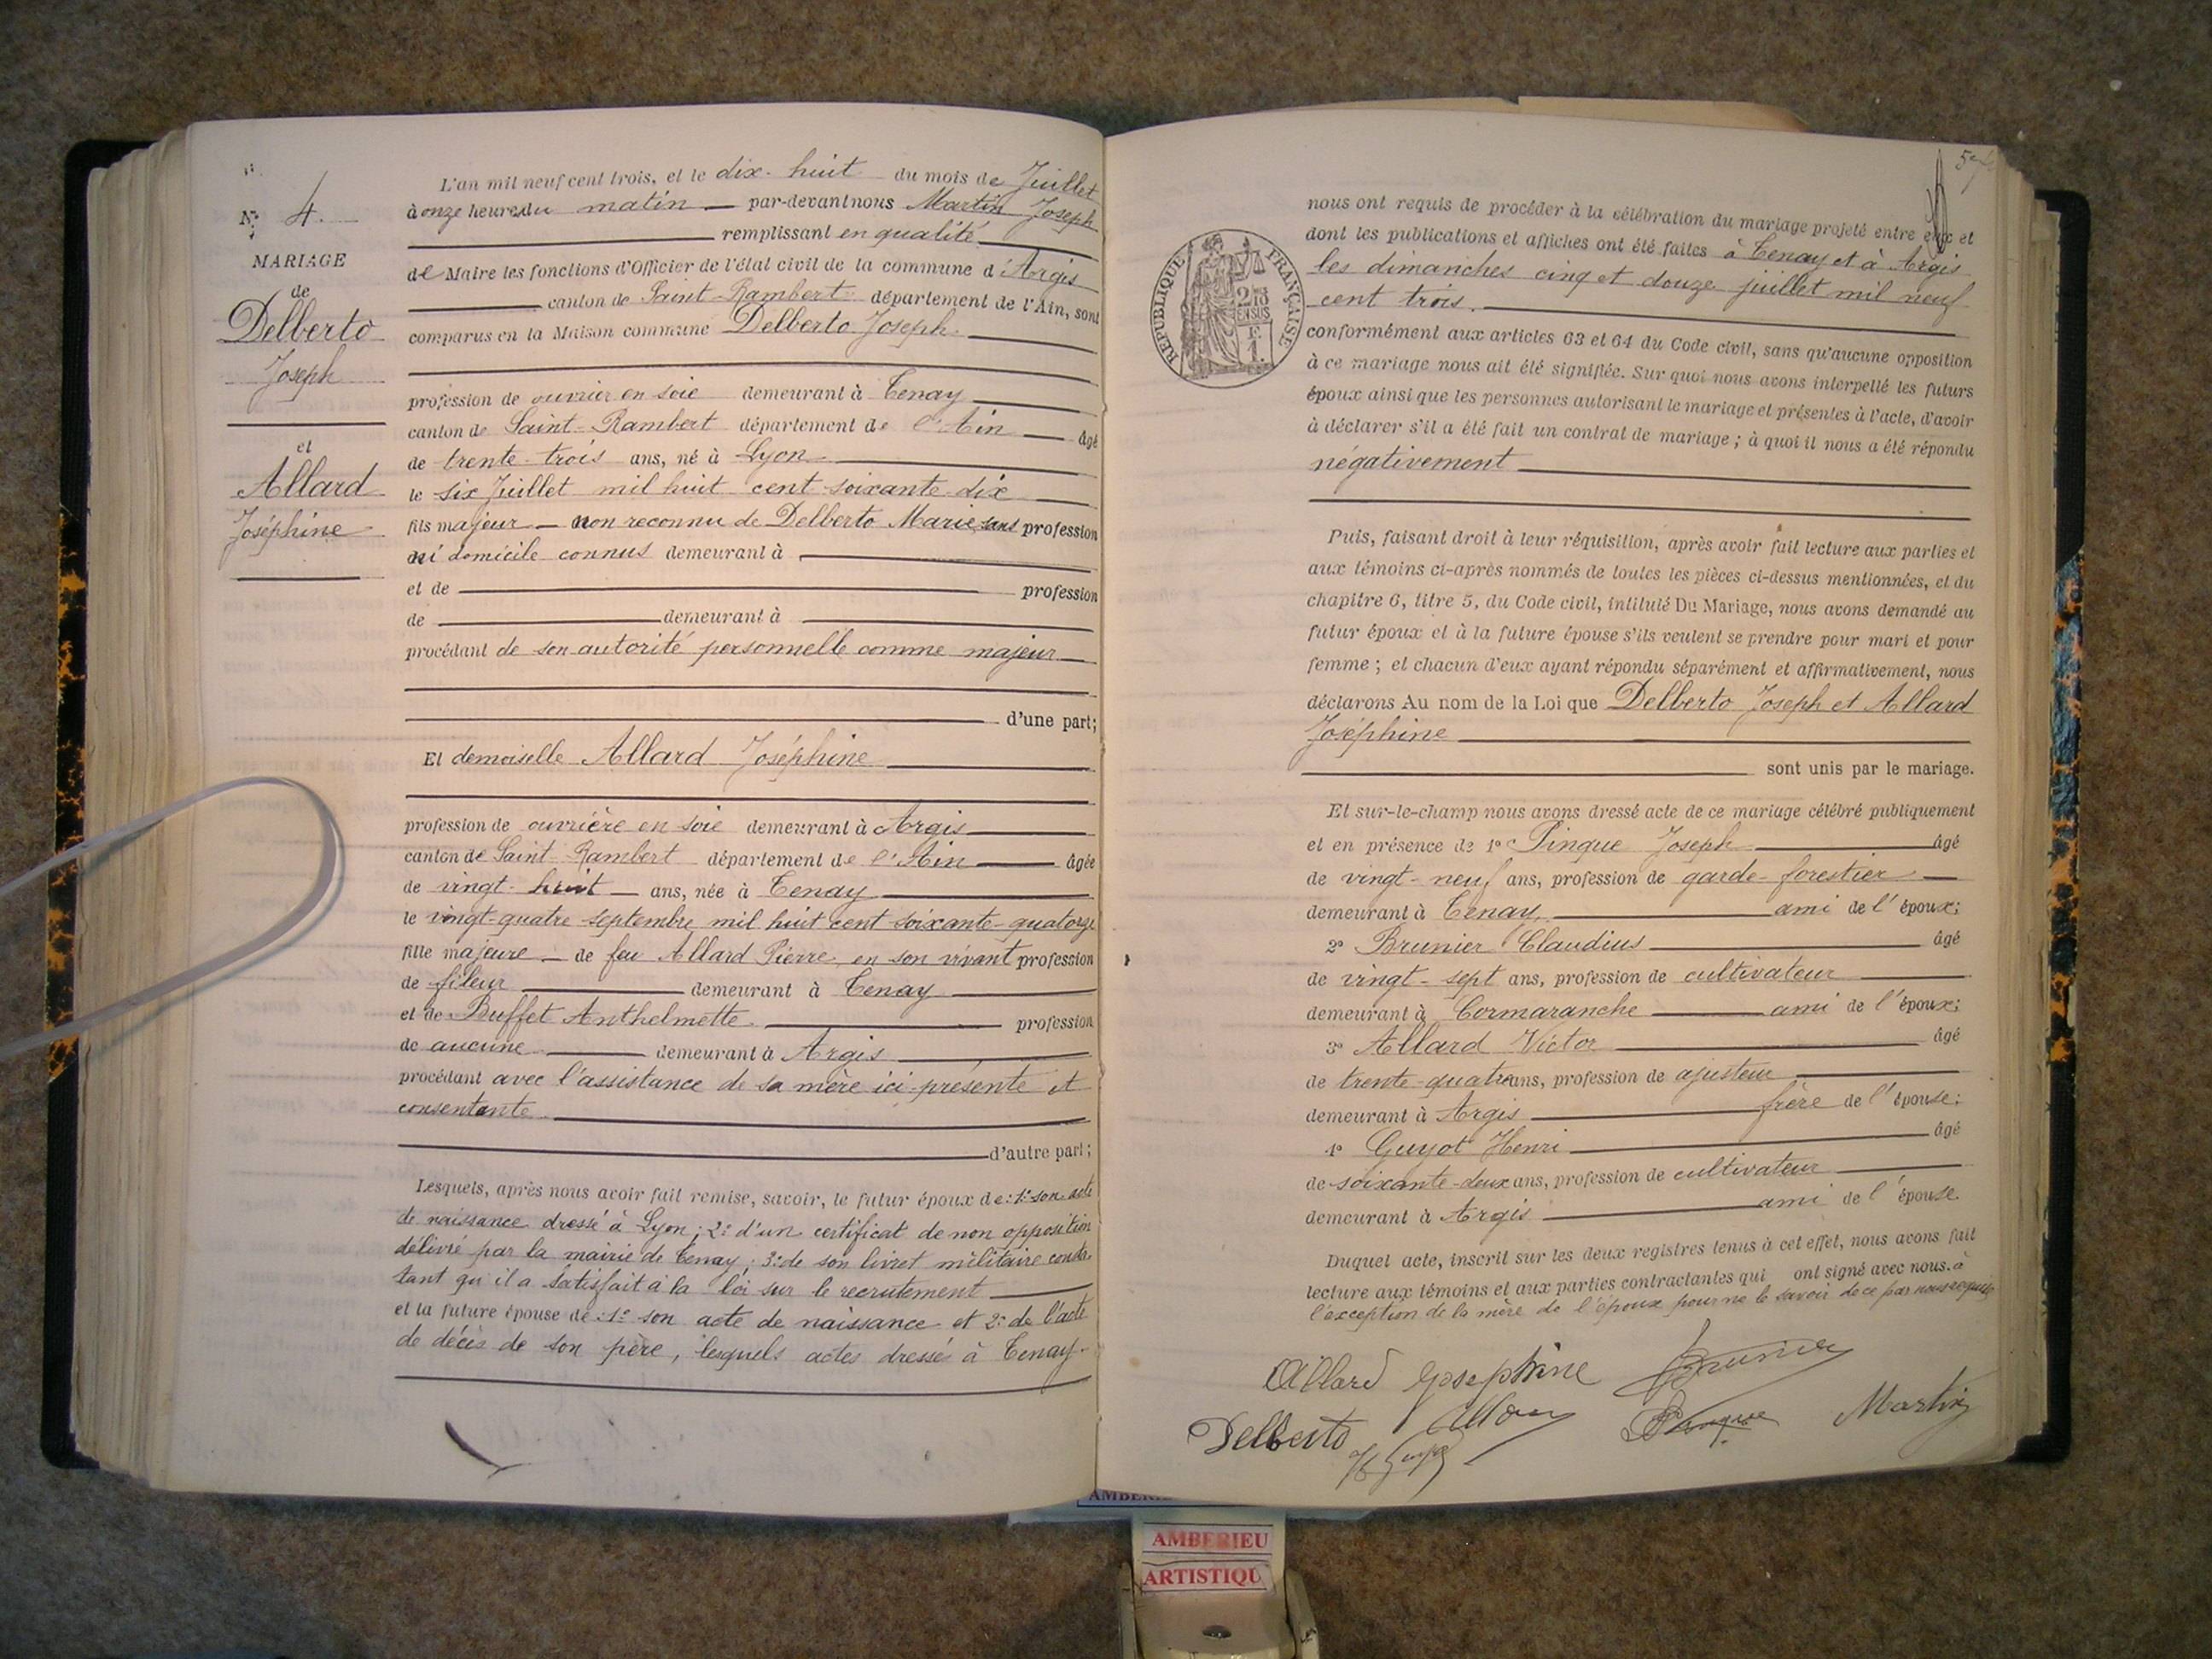 N° 4.
MARIAGE
de
Delberto
Joseph
et
Allard
Joséphine
L'an mil neuf cent trois, et le dix-huit du mois de Juillet
à onze heures du matin par-devant nous Martin Joseph
remplissant en qualité
de Maire les fonctions d'Officier de l'état civil de la commune d'Argis
canton de Saint-Rambert département de l'Ain, sont
comparus en la Maison commune Delberto Joseph
profession de ouvrier en soie demeurant à Tenay
canton de Saint-Rambert département de l'Ain âgé
de trente-trois ans, né à Lyon
le six Juillet mil huit cent soixante-dix
fils majeur non reconnu de Delberto Marie, sans profession
ni domicile connus demeurant à
et de profession
de demeurant à
procédant de son autorité personnelle comme majeur
d'une part;
Et demoiselle Allard Joséphine
profession de ouvrière en soie demeurant à Argis
canton de Saint-Rambert département de l'Ain âgée
de vingt-huit ans, née à Tenay
le vingt-quatre septembre mil huit cent soixante-quatorze
fille majeure de feu Allard Pierre, en son vivant profession
de fileur demeurant à Tenay
et de Buffet Anthelmette profession
de aucune demeurant à Argis
procédant avec l'assistance de sa mère ici présente et
consentante.
d'autre part;
Lesquels, après nous avoir fait remise, savoir, le futur époux de: 1° son acte
de naissance dressé à Lyon; 2° d'un certificat de non opposition
délivré par la mairie de Tenay; 3° de son livret militaire consta-
tant qu'il a satisfait à la loi sur le recrutement
et la future épouse de: 1° son acte de naissance et 2° de l'acte
de décès de son père, lesquels actes dressés à Tenay.
nous ont requis de procéder à la célébration du mariage projeté entre eux et
dont les publications et affiches ont été faites à Tenay et à Argis
les dimanches cinq et douze juillet mil neuf
cent trois.
REPUBLIQUE FRANÇAISE
conformément aux articles 63 et 64 du Code civil, sans qu'aucune opposition
à ce mariage nous ait été signifiée. Sur quoi nous avons interpellé les futurs
époux ainsi que les personnes autorisant le mariage et présentes à l'acte, d'avoir
à déclarer s'il a été fait un contrat de mariage; à quoi il nous a été répondu
négativement
Puis, faisant droit à leur réquisition, après avoir fait lecture aux parties et
aux témoins ci-après nommés de toutes les pièces ci-dessus mentionnées, et du
chapitre 6, titre 5, du Code civil, intitulé Du Mariage, nous avons demandé au
futur époux et à la future épouse s'ils veulent se prendre pour mari et pour
femme; et chacun d'eux ayant répondu séparément et affirmativement, nous
déclarons Au nom de la Loi que Delberto Joseph et Allard
Joséphine
sont unis par le mariage.
Et sur-le-champ nous avons dressé acte de ce mariage célébré publiquement
et en présence de 1° Pinque Joseph âgé
de vingt-neuf ans, profession de garde-forestier
demeurant à Tenay, ami de l'époux;
2° Brunier Claudius âgé
de vingt-sept ans, profession de cultivateur
demeurant à Cormaranche ami de l'époux;
3° Allard Victor âgé
de trente-quatre ans, profession de ajusteur
demeurant à Argis frère de l'épouse;
4° Guyot Henri âgé
de soixante-deux ans, profession de cultivateur
demeurant à Argis ami de l'épouse.
Duquel acte, inscrit sur les deux registres tenus à cet effet, nous avons fait
lecture aux témoins et aux parties contractantes qui ont signé avec nous à
l'exception de la mère de l'époux pour ne le savoir de ce par nous requis
Allard Josephine Brunier
Delberto Allard Pinque Martin
H Guyot
AMBERIEU
ARTISTIQU